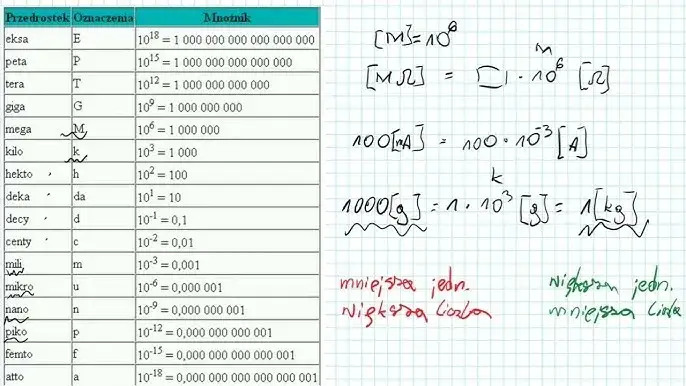 Przedrostek Oznaczenia Mnożnik
eksa E 10^18 = 1 000 000 000 000 000 000
peta P 10^15 = 1 000 000 000 000 000
tera T 10^12 = 1 000 000 000 000
giga G 10^9 = 1 000 000 000
mega M 10^6 = 1 000 000
kilo k 10^3 = 1 000
hekto h 10^2 = 100
deka da 10^1 = 10
decy d 10^-1 = 0,1
centy c 10^-2 = 0,01
mili m 10^-3 = 0,001
mikro u 10^-6 = 0,000 001
nano n 10^-9 = 0,000 000 001
piko p 10^-12 = 0,000 000 000 001
femto f 10^-15 = 0,000 000 000 000 001
atto a 10^-18 = 0,000 000 000 000 000 001
[M]=10^6
[MΩ] = □ · 10^6 [Ω]
100[mA] = 100 · 10^-3 [A]
k
1000[g] = 1 · 10^3 [g] = 1[kg]
mniejsza jedn.
większa liczba
większa jedn.
mniejsza liczba